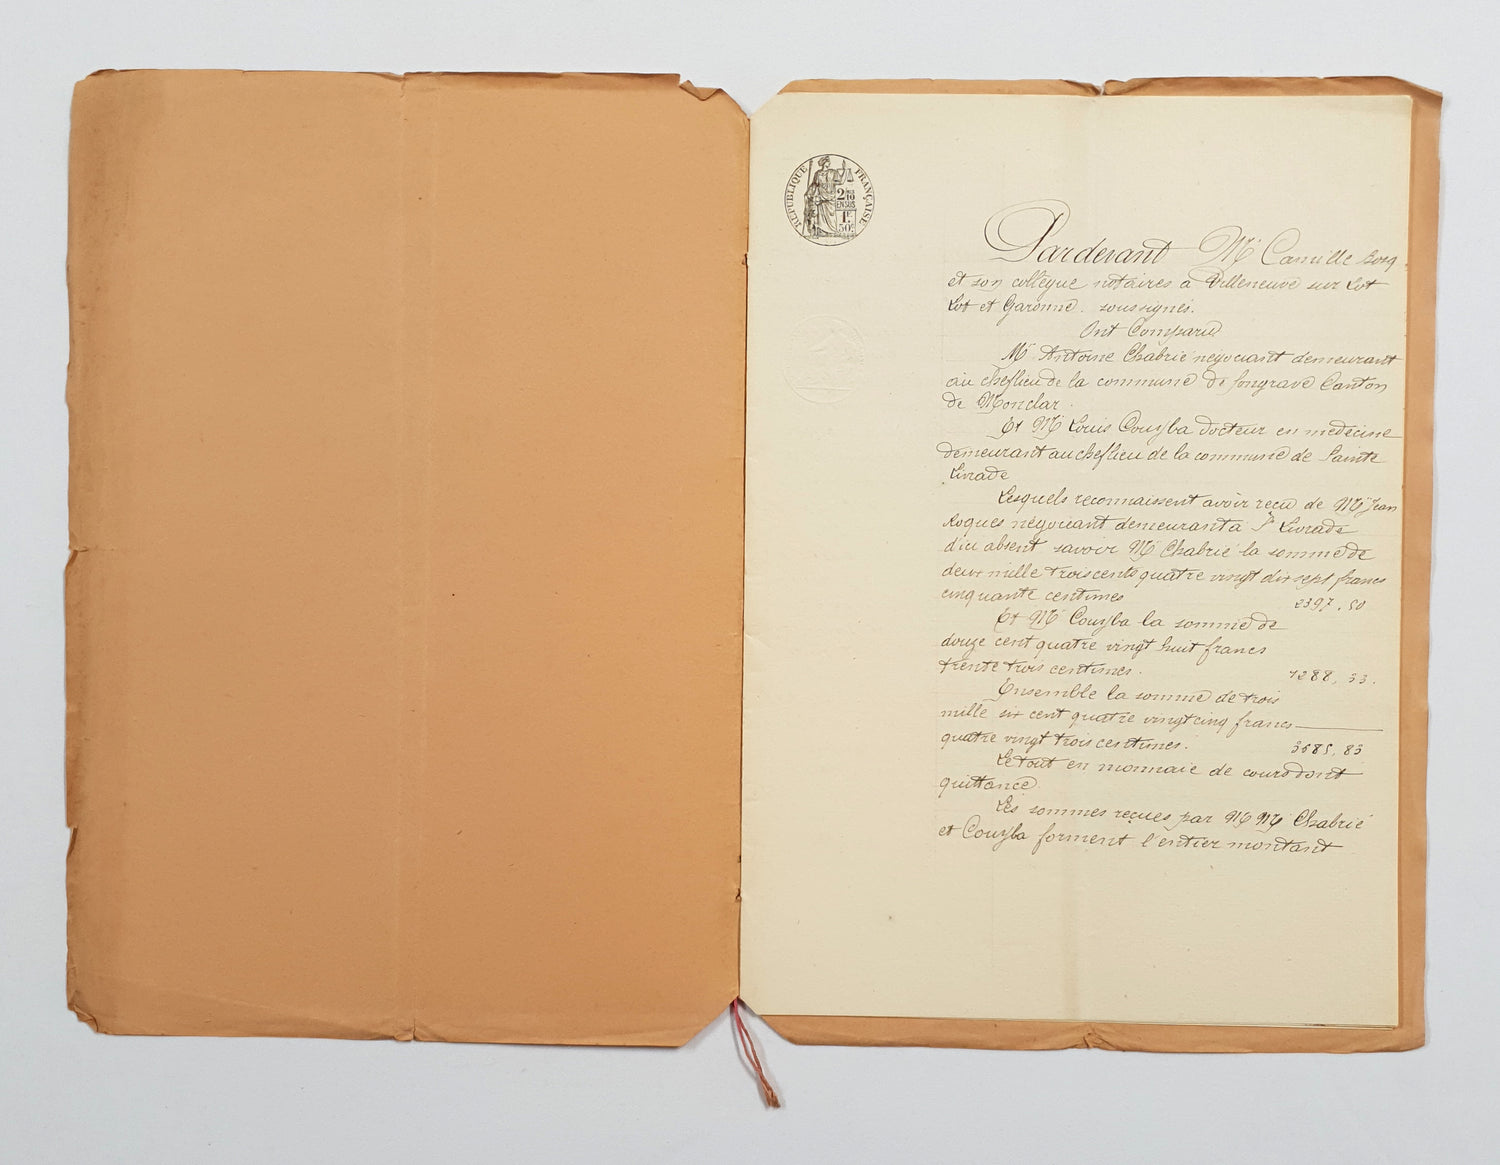 RÉPUBLIQUE FRANÇAISE
2/10
EN SUS
1F.
50C.
Pardevant Mᵉ Camille
et son collègue notaires à Villeneuve sur Lot
Lot et Garonne. soussignés.
Ont Comparu
Mʳ Antoine Chabrié négociant demeurant
au cheflieu de la commune de fongrave Canton
de Monclar.
Et Mʳ Louis Couyba docteur en medecine
demeurant au cheflieu de la commune de Sainte
Livrade
Lesquels reconnaissent avoir recu de Mʳ Jean
Roques négociant demeurant à Sᵗᵉ Livrade
d'ici absent savoir Mʳ Chabrié la somme de
deux mille trois cents quatre vingt dix sept francs
cinquante centimes 2397,50
Et Mʳ Couyba la somme de
douze cent quatre vingt huit francs
trente trois centimes. 1288,33.
Ensemble la somme de trois
mille six cent quatre vingt cinq francs
quatre vingt trois centimes. 3685,83
Le tout en monnaie de cours dont
quittance.
Les sommes reçues par M Mʳˢ Chabrié
et Couyba forment l'entier montant